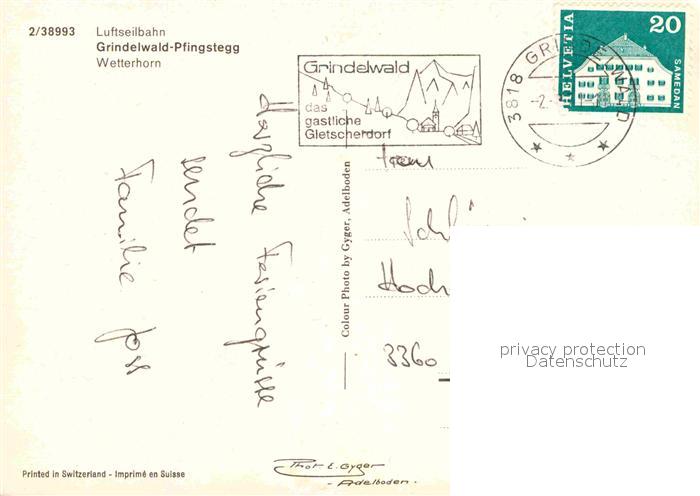 2/38993 Luftseilbahn
Grindelwald-Pfingstegg
Wetterhorn
Grindelwald
das
gastliche
Gletscherdorf
3818 GRINDELWALD
-2.
HELVETIA
20
SAMEDAN
Herzliche Feriengrüsse
sendet
Familie Jost
Colour Photo by Gyger, Adelboden
Frau
Hoch
3360
privacy protection
Datenschutz
Printed in Switzerland - Imprimé en Suisse
Phot E. Gyger
- Adelboden.